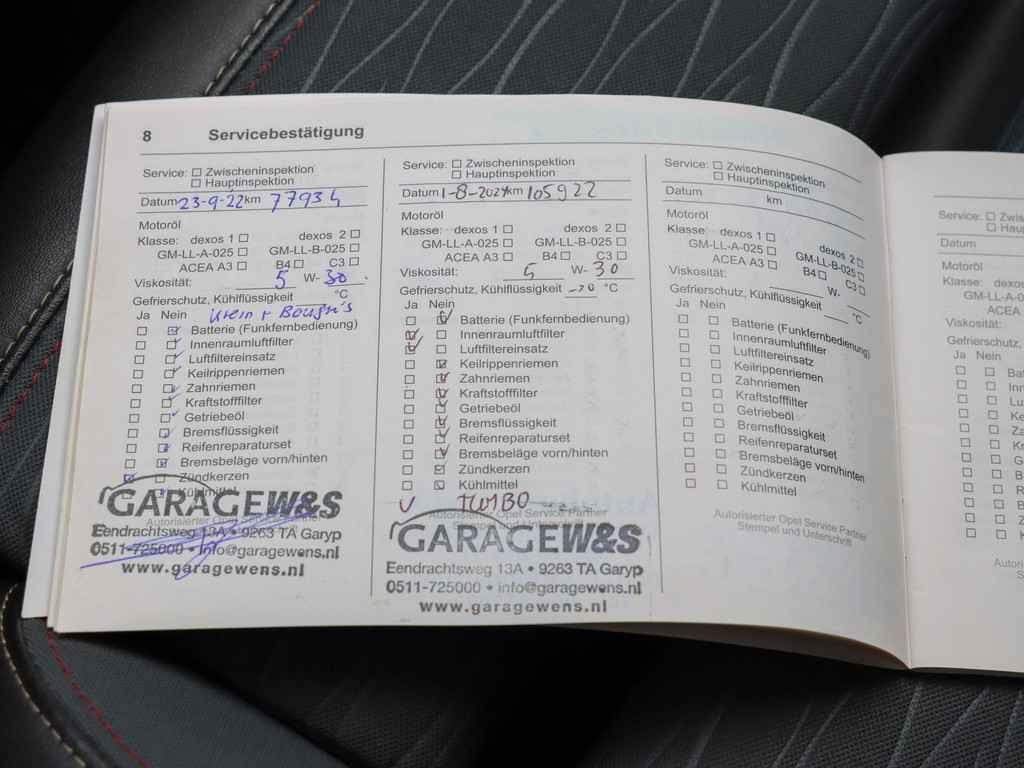 8 Servicebestätigung
Service: Zwischeninspektion
Hauptinspektion
Datum 23-9-22 km 77934
Motoröl
Klasse: dexos 1 dexos 2
GM-LL-A-025 GM-LL-B-025
ACEA A3 B4 C3
Viskosität: 5 W- 30
Gefrierschutz, Kühlflüssigkeit °C
Ja Nein
Batterie (Funkfernbedienung)
Innenraumluftfilter
Luftfiltereinsatz
Keilrippenriemen
Zahnriemen
Kraftstofffilter
Getriebeöl
Bremsflüssigkeit
Reifenreparaturset
Bremsbeläge vorn/hinten
Zündkerzen
Kühlmittel
Autorisierter Opel Service Partner
GARAGEW&S
Eendrachtsweg 13A • 9263 TA Garyp
0511-725000 • info@garagewens.nl
www.garagewens.nl
Service: Zwischeninspektion
Hauptinspektion
Datum 1-8-2024 km 105922
Motoröl
Klasse: dexos 1 dexos 2
GM-LL-A-025 GM-LL-B-025
ACEA A3 B4 C3
Viskosität: 5 W- 30
Gefrierschutz, Kühlflüssigkeit -20 °C
Ja Nein
Batterie (Funkfernbedienung)
Innenraumluftfilter
Luftfiltereinsatz
Keilrippenriemen
Zahnriemen
Kraftstofffilter
Getriebeöl
Bremsflüssigkeit
Reifenreparaturset
Bremsbeläge vorn/hinten
Zündkerzen
Kühlmittel
Autorisierter Opel Service Partner
Stempel und Unterschrift
GARAGEW&S
Eendrachtsweg 13A • 9263 TA Garyp
0511-725000 • info@garagewens.nl
www.garagewens.nl
Service: Zwischeninspektion
Hauptinspektion
Datum km
Motoröl
Klasse: dexos 1 dexos 2
GM-LL-A-025 GM-LL-B-025
ACEA A3 B4 C3
Viskosität: W-
Gefrierschutz, Kühlflüssigkeit °C
Ja Nein
Batterie (Funkfernbedienung)
Innenraumluftfilter
Luftfiltereinsatz
Keilrippenriemen
Zahnriemen
Kraftstofffilter
Getriebeöl
Bremsflüssigkeit
Reifenreparaturset
Bremsbeläge vorn/hinten
Zündkerzen
Kühlmittel
Autorisierter Opel Service Partner
Stempel und Unterschrift
Service: Zwis
Hau
Datum
Motoröl
Klasse: dexo
GM-LL-A
ACEA
Viskosität:
Gefrierschutz,
Ja Nein
Bat
Inn
Lu
Ke
Za
Kr
G
B
R
B
Z
K
Autori
S